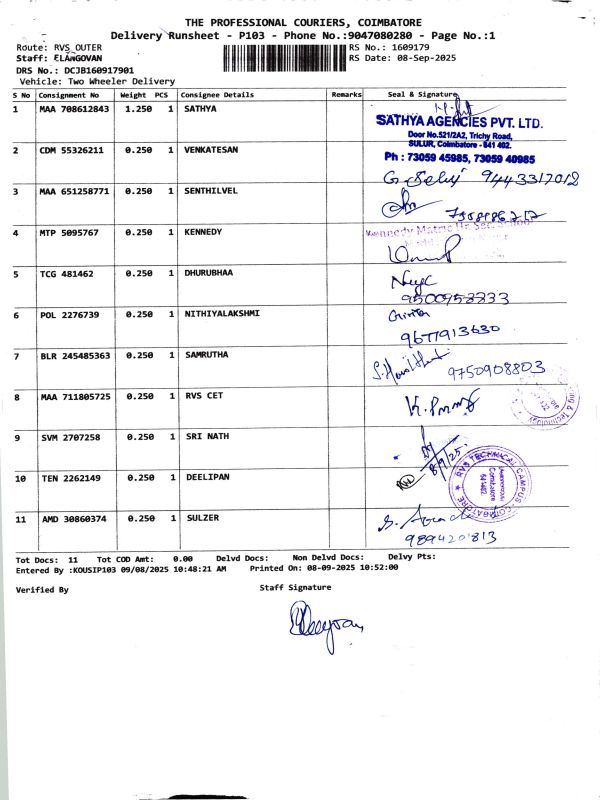 THE PROFESSIONAL COURIERS, COIMBATORE
Delivery Runsheet - P103 - Phone No.:9047080280 - Page No.:1
Route: RVS OUTER RS No.: 1609179
Staff: ELANGOVAN RS Date: 08-Sep-2025
DRS No.: DCJB160917901
Vehicle: Two Wheeler Delivery
S No Consignment No Weight PCS Consignee Details Remarks Seal & Signature
1 MAA 708612843 1.250 1 SATHYA
SATHYA AGENCIES PVT. LTD.
Door No.521/2A2, Trichy Road,
SULUR, Coimbatore - 641 402.
Ph : 73059 45985, 73059 40985
2 CDM 55326211 0.250 1 VENKATESAN
9443317012
3 MAA 651258771 0.250 1 SENTHILVEL
4 MTP 5095767 0.250 1 KENNEDY
Kennedy Matric Hr. Sec. School
5 TCG 481462 0.250 1 DHURUBHAA
9500953333
6 POL 2276739 0.250 1 NITHIYALAKSHMI
9677913630
7 BLR 245485363 0.250 1 SAMRUTHA
9750908803
8 MAA 711805725 0.250 1 RVS CET
& Technology
9 SVM 2707258 0.250 1 SRI NATH
8/9/25
10 TEN 2262149 0.250 1 DEELIPAN
RVS TECHNICAL CAMPUS - COIMBATORE
Coimbatore
641402
11 AMD 30860374 0.250 1 SULZER
9894220813
Tot Docs: 11 Tot COD Amt: 0.00 Delvd Docs: Non Delvd Docs: Delvy Pts:
Entered By :KOUSIP103 09/08/2025 10:48:21 AM Printed On: 08-09-2025 10:52:00
Verified By Staff Signature